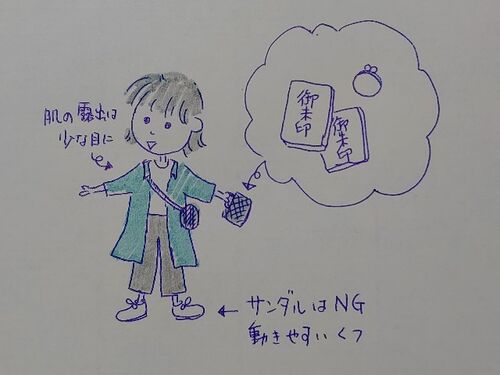 肌の露出は
少な目に
御朱印
御朱印
サンダルはNG
動きやすいくつ